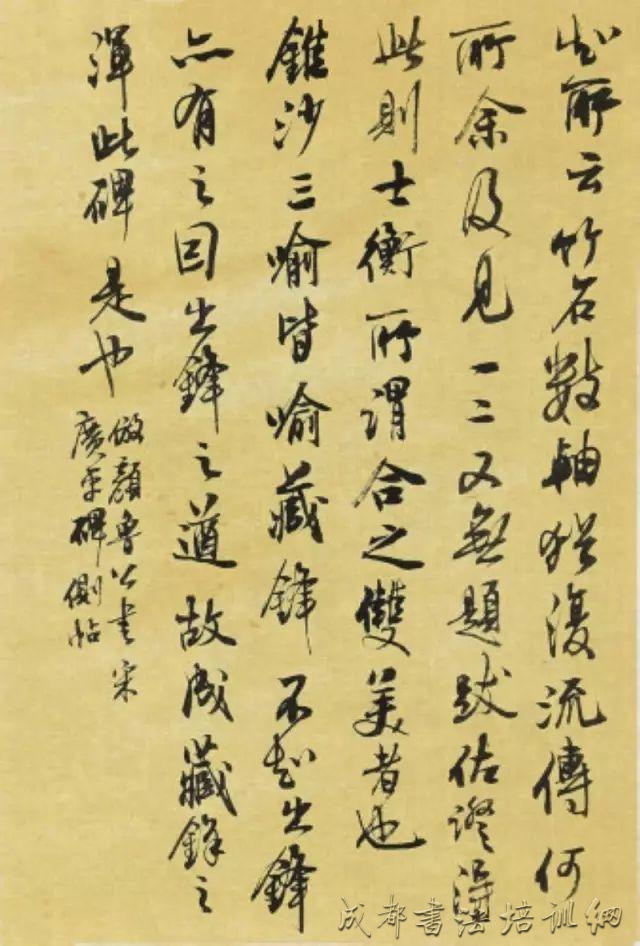 芾所云竹石數軸猶復流傳何
所余及見一二又無題跋佐證得
此則士衡所謂合之雙美者也
錐沙三喻皆喻藏鋒不知出鋒
亦有之因出鋒之遒故成藏鋒之
渾此碑是也
倣顏魯公書宋
廣平碑側帖
成都書法培訓網